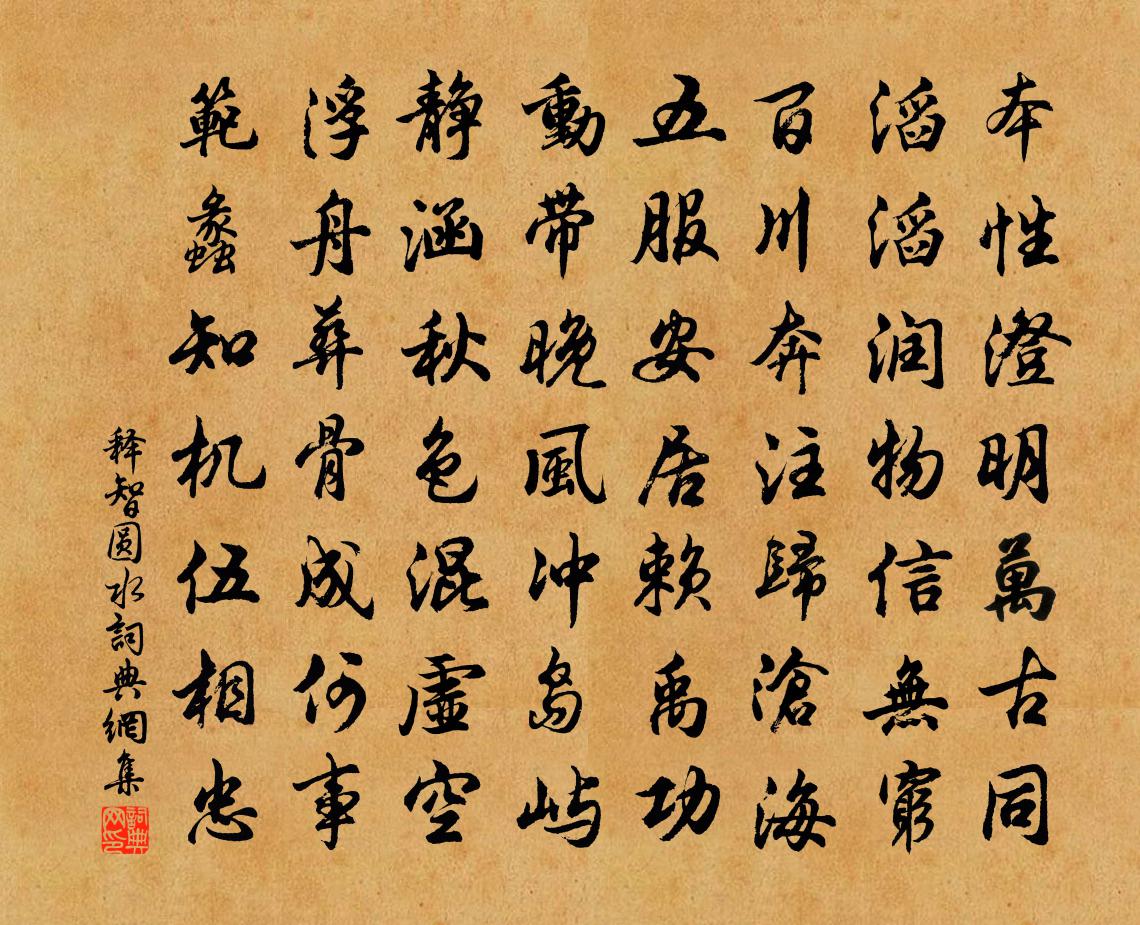 本性澄明萬古同
滔滔润物信無窮
百川奔注歸滄海
五服安居賴禹功
動带晚風冲島嶼
静涵秋色混虛空
浮舟葬骨成何事
範蠡知机伍相忠
释智圆水詞典網集
詞典網印